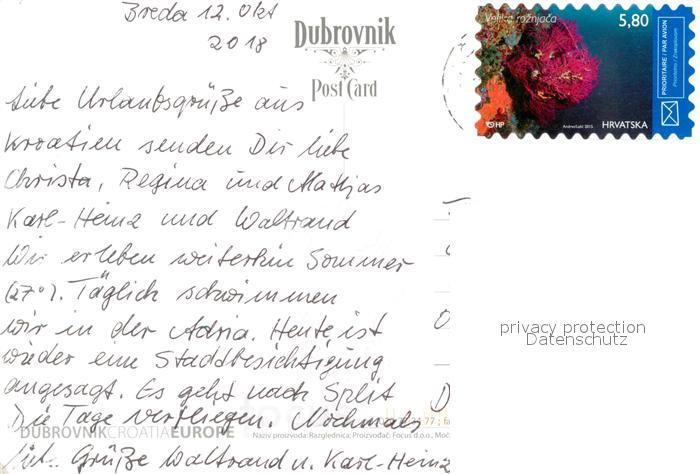 Breda 12. Okt
2018
Dubrovnik
Post Card
Velika rožnjača
5,80
PRIORITAIRE / PAR AVION
Prioritetno / Zrakoplovom
HP
HRVATSKA
Liebe Urlaubsgrüße aus
Kroatien senden Dir liebe
Christa, Regina und Mathias
Karl-Heinz und Waltraud
Wir erleben weiterhin Sommer
(27°). Täglich schwimmen
wir in der Adria. Heute ist
wieder eine Stadtbesichtigung
angesagt. Es geht nach Split
Die Tage verfliegen. Nochmals
DUBROVNIKCROATIAEUROPE
Naziv proizvoda: Razglednica; Proizvođač: Focus d.o.o.,
Grüße Waltraud u. Karl-Heinz
privacy protection
Datenschutz